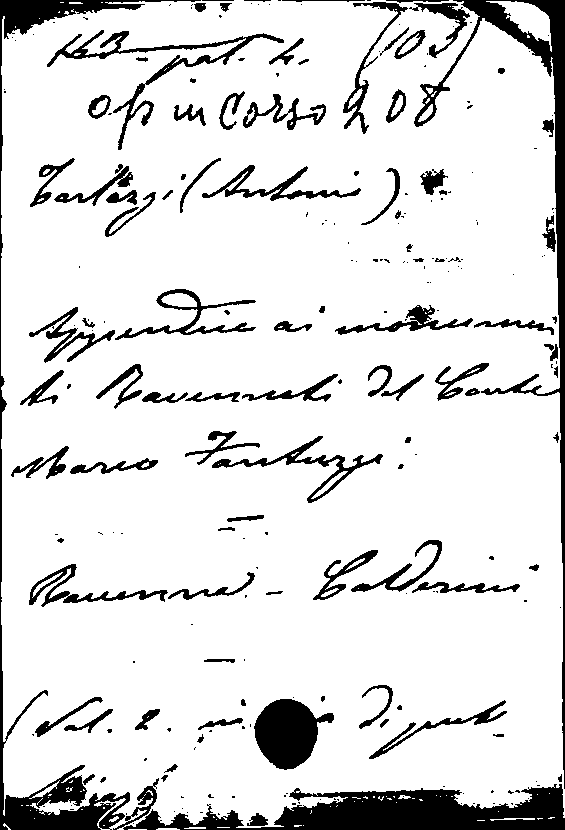 143 - pal. 4. (103)
Op in corso 208
Tarlazzi (Antonio)
Appendice ai monumen
ti Ravennati del Conte
Marco Fantuzzi.
—
Ravenna - Calderini
—
(Vol. 2. in di